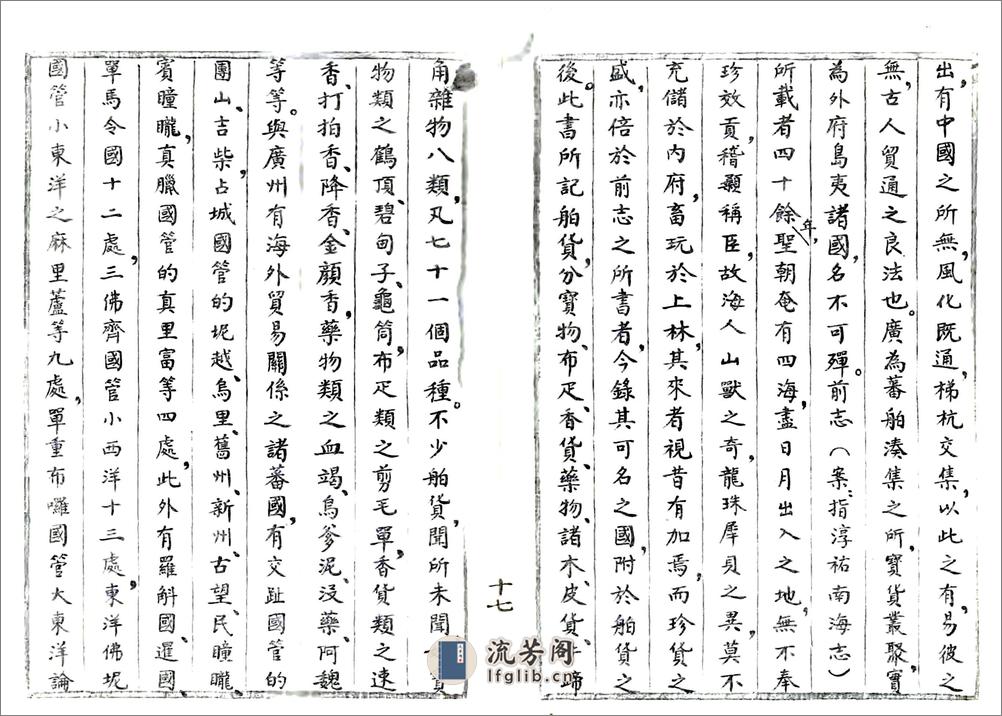 出，有中國之所無，風化既通，梯杭交集，以此之有，易彼之
無，古人貿通之良法也。廣為蕃舶湊集之所，寶貨叢聚，實
為外府島夷諸國，名不可殫。前志（案：指淳祐南海志）
所載者四十餘年，聖朝奄有四海，盡日月出入之地，無不奉
珍效貢，稽顙稱臣，故海人山獸之奇，龍珠犀貝之異，莫不
充儲於內府，畜玩於上林，其來者視昔有加焉，而珍貨之
盛，亦倍於前志之所書者，今錄其可名之國，附於舶貨之
後。此書所記舶貨，分寶物、布疋、香貨、藥物、諸木、皮貨、蹄
十七
角、雜物八類，凡七十一個品種。不少舶貨，聞所未聞
物類之鶴頂、碧甸子、龜筒，布疋類之剪毛單，香貨類之速
香、打拍香、降香、金顏香，藥物類之血竭、烏爹泥、沒藥、阿魏
等等。與廣州有海外貿易關係之諸蕃國，有交趾國管的
團山、吉柴，占城國管的坭越、烏里、舊州、新州、古望、民瞳矓、
賓瞳矓，真臘國管的真里富等四處，此外有羅斛國、暹國、
單馬令國十二處，三佛齊國管小西洋十三處，東洋佛坭
國管小東洋之麻里蘆等九處，單重布囉國管大東洋論
流芳阁
lfglib.cn